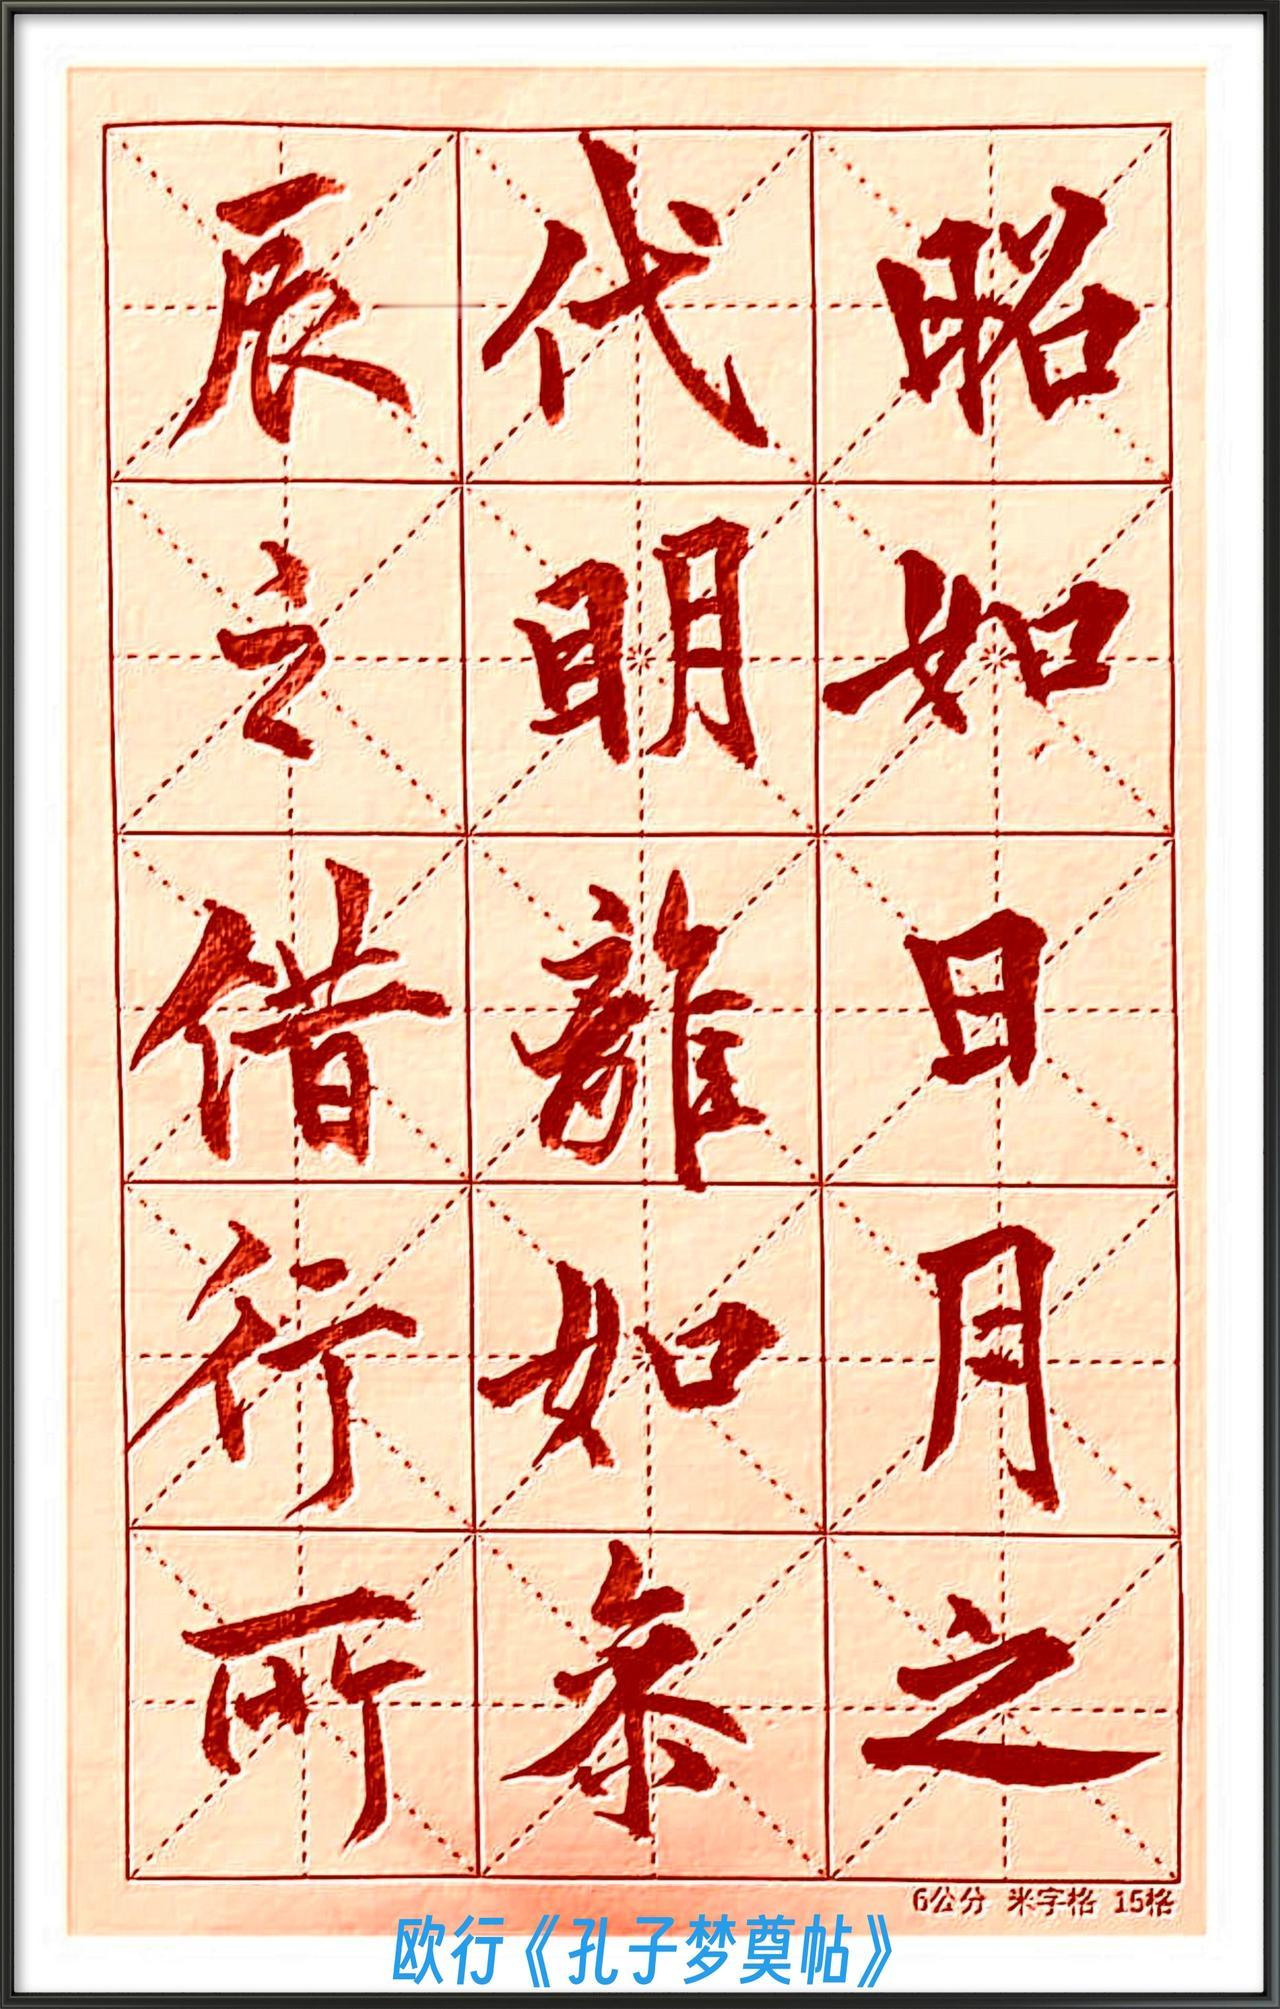 昭如日月之
代明離如参
辰之借行所
6公分 米字格 15格
欧行《孔子梦奠帖》